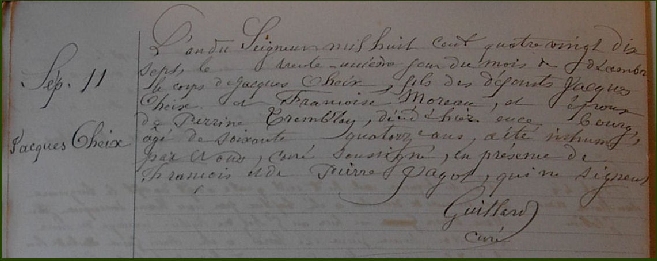 Sep. 11
Jacques Choix
L'an du Seigneur mil huit cent quatre vingt dix
sept, le trente-unième jour du mois de
le corps de Jacques Choix, fils des défunts Jacques
Choix et Françoise Moreau, et époux
de Perrine Tremblay, décédé hier en ce bourg,
âgé de soixante quatorze ans, a été inhumé
par Nous, curé soussigné, en présence de
François et de Pierre Pagot, qui ne signent
Guillard
curé